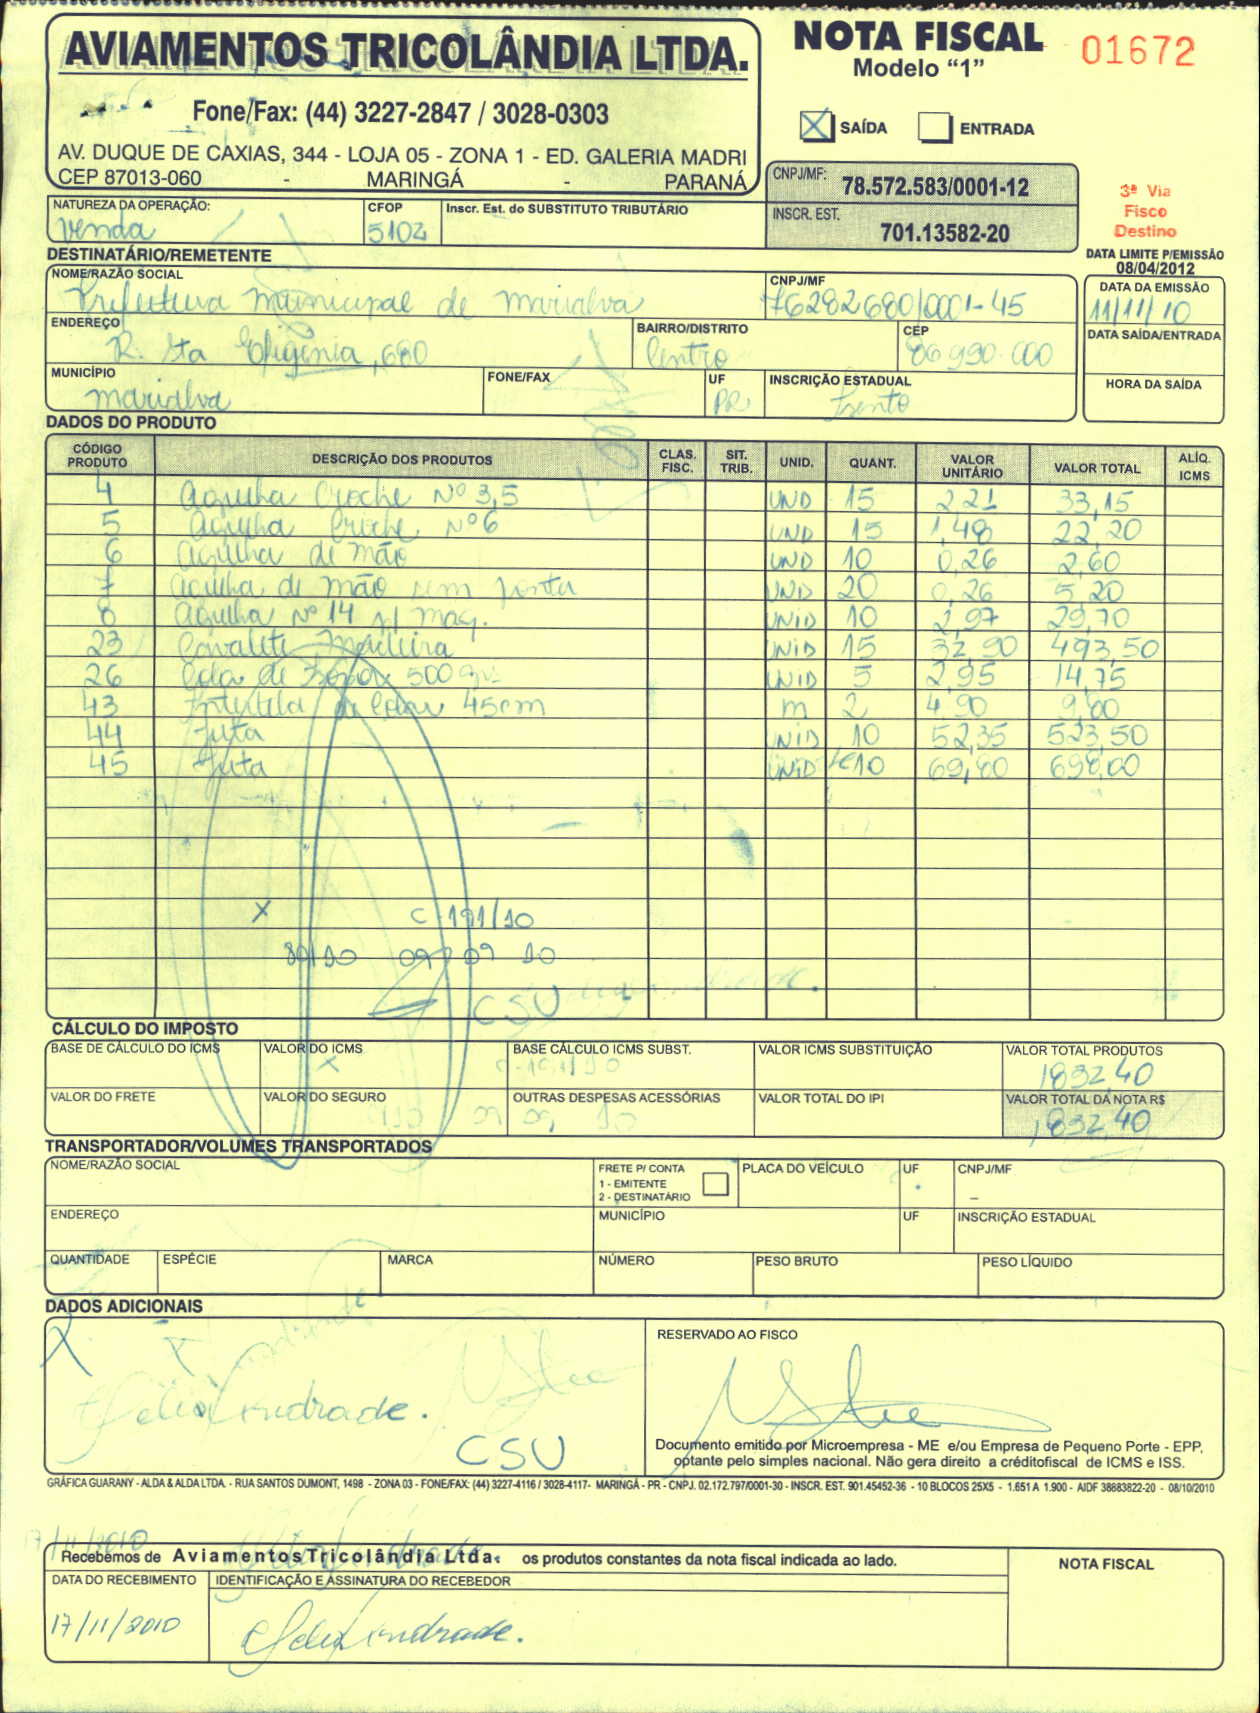 AVIAMENTOS TRICOLÂNDIA LTDA.
Fone/Fax: (44) 3227-2847 / 3028-0303
AV. DUQUE DE CAXIAS, 344 - LOJA 05 - ZONA 1 - ED. GALERIA MADRI
CEP 87013-060 - MARINGÁ - PARANÁ
NOTA FISCAL
Modelo “1”
01672
X SAÍDA ENTRADA
CNPJ/MF: 78.572.583/0001-12
INSCR. EST. 701.13582-20
3ª Via
Fisco
Destino
DATA LIMITE P/EMISSÃO
08/04/2012
NATUREZA DA OPERAÇÃO: CFOP Inscr. Est. do SUBSTITUTO TRIBUTÁRIO
Venda 5102
DESTINATÁRIO/REMETENTE
NOME/RAZÃO SOCIAL CNPJ/MF DATA DA EMISSÃO
Prefeitura Municipal de Marialva 76282680/0001-45 11/11/10
ENDEREÇO BAIRRO/DISTRITO CEP DATA SAÍDA/ENTRADA
R. Sta Efigênia, 680 Centro 86990-000
MUNICÍPIO FONE/FAX UF INSCRIÇÃO ESTADUAL HORA DA SAÍDA
Marialva PR Isento
DADOS DO PRODUTO
CÓDIGO PRODUTO DESCRIÇÃO DOS PRODUTOS CLAS. FISC. SIT. TRIB. UNID. QUANT. VALOR UNITÁRIO VALOR TOTAL ALÍQ. ICMS
4 Agulha Croche Nº 3,5 UND 15 2,21 33,15
5 Agulha Croche Nº 6 UND 15 1,48 22,20
6 Agulha de mão UND 10 0,26 2,60
7 Agulha de mão sem ponta UND 20 0,26 5,20
8 Agulha Nº 14 p/ maq. UNID 10 2,97 29,70
23 Cavalete Madeira UNID 15 32,90 493,50
26 Cola de 500 UNID 5 2,95 14,75
43 Entretela 45cm m 2 4,90 9,80
44 Juta UNID 10 52,35 523,50
45 Juta UNID 10 69,80 698,00
X C-191/10
89/10 09 09 10
CSU
CÁLCULO DO IMPOSTO
BASE DE CÁLCULO DO ICMS VALOR DO ICMS BASE CÁLCULO ICMS SUBST. VALOR ICMS SUBSTITUIÇÃO VALOR TOTAL PRODUTOS
1832,40
VALOR DO FRETE VALOR DO SEGURO OUTRAS DESPESAS ACESSÓRIAS VALOR TOTAL DO IPI VALOR TOTAL DA NOTA R$
1832,40
TRANSPORTADOR/VOLUMES TRANSPORTADOS
NOME/RAZÃO SOCIAL FRETE P/ CONTA 1 - EMITENTE 2 - DESTINATÁRIO PLACA DO VEÍCULO UF CNPJ/MF
ENDEREÇO MUNICÍPIO UF INSCRIÇÃO ESTADUAL
QUANTIDADE ESPÉCIE MARCA NÚMERO PESO BRUTO PESO LÍQUIDO
DADOS ADICIONAIS
RESERVADO AO FISCO
Andrade.
CSU
Documento emitido por Microempresa - ME e/ou Empresa de Pequeno Porte - EPP,
optante pelo simples nacional. Não gera direito a créditofiscal de ICMS e ISS.
GRÁFICA GUARANY - ALDA & ALDA LTDA. - RUA SANTOS DUMONT, 1498 - ZONA 03 - FONE/FAX: (44) 3227-4116 / 3028-4117- MARINGÁ - PR - CNPJ. 02.172.797/0001-30 - INSCR. EST. 901.45452-36 - 10 BLOCOS 25X5 - 1.651 A 1.900 - AIDF 38683822-20 - 08/10/2010
17/11/2010
Recebemos de Aviamentos Tricolândia Ltda. os produtos constantes da nota fiscal indicada ao lado. NOTA FISCAL
DATA DO RECEBIMENTO IDENTIFICAÇÃO E ASSINATURA DO RECEBEDOR
17/11/2010 Andrade.